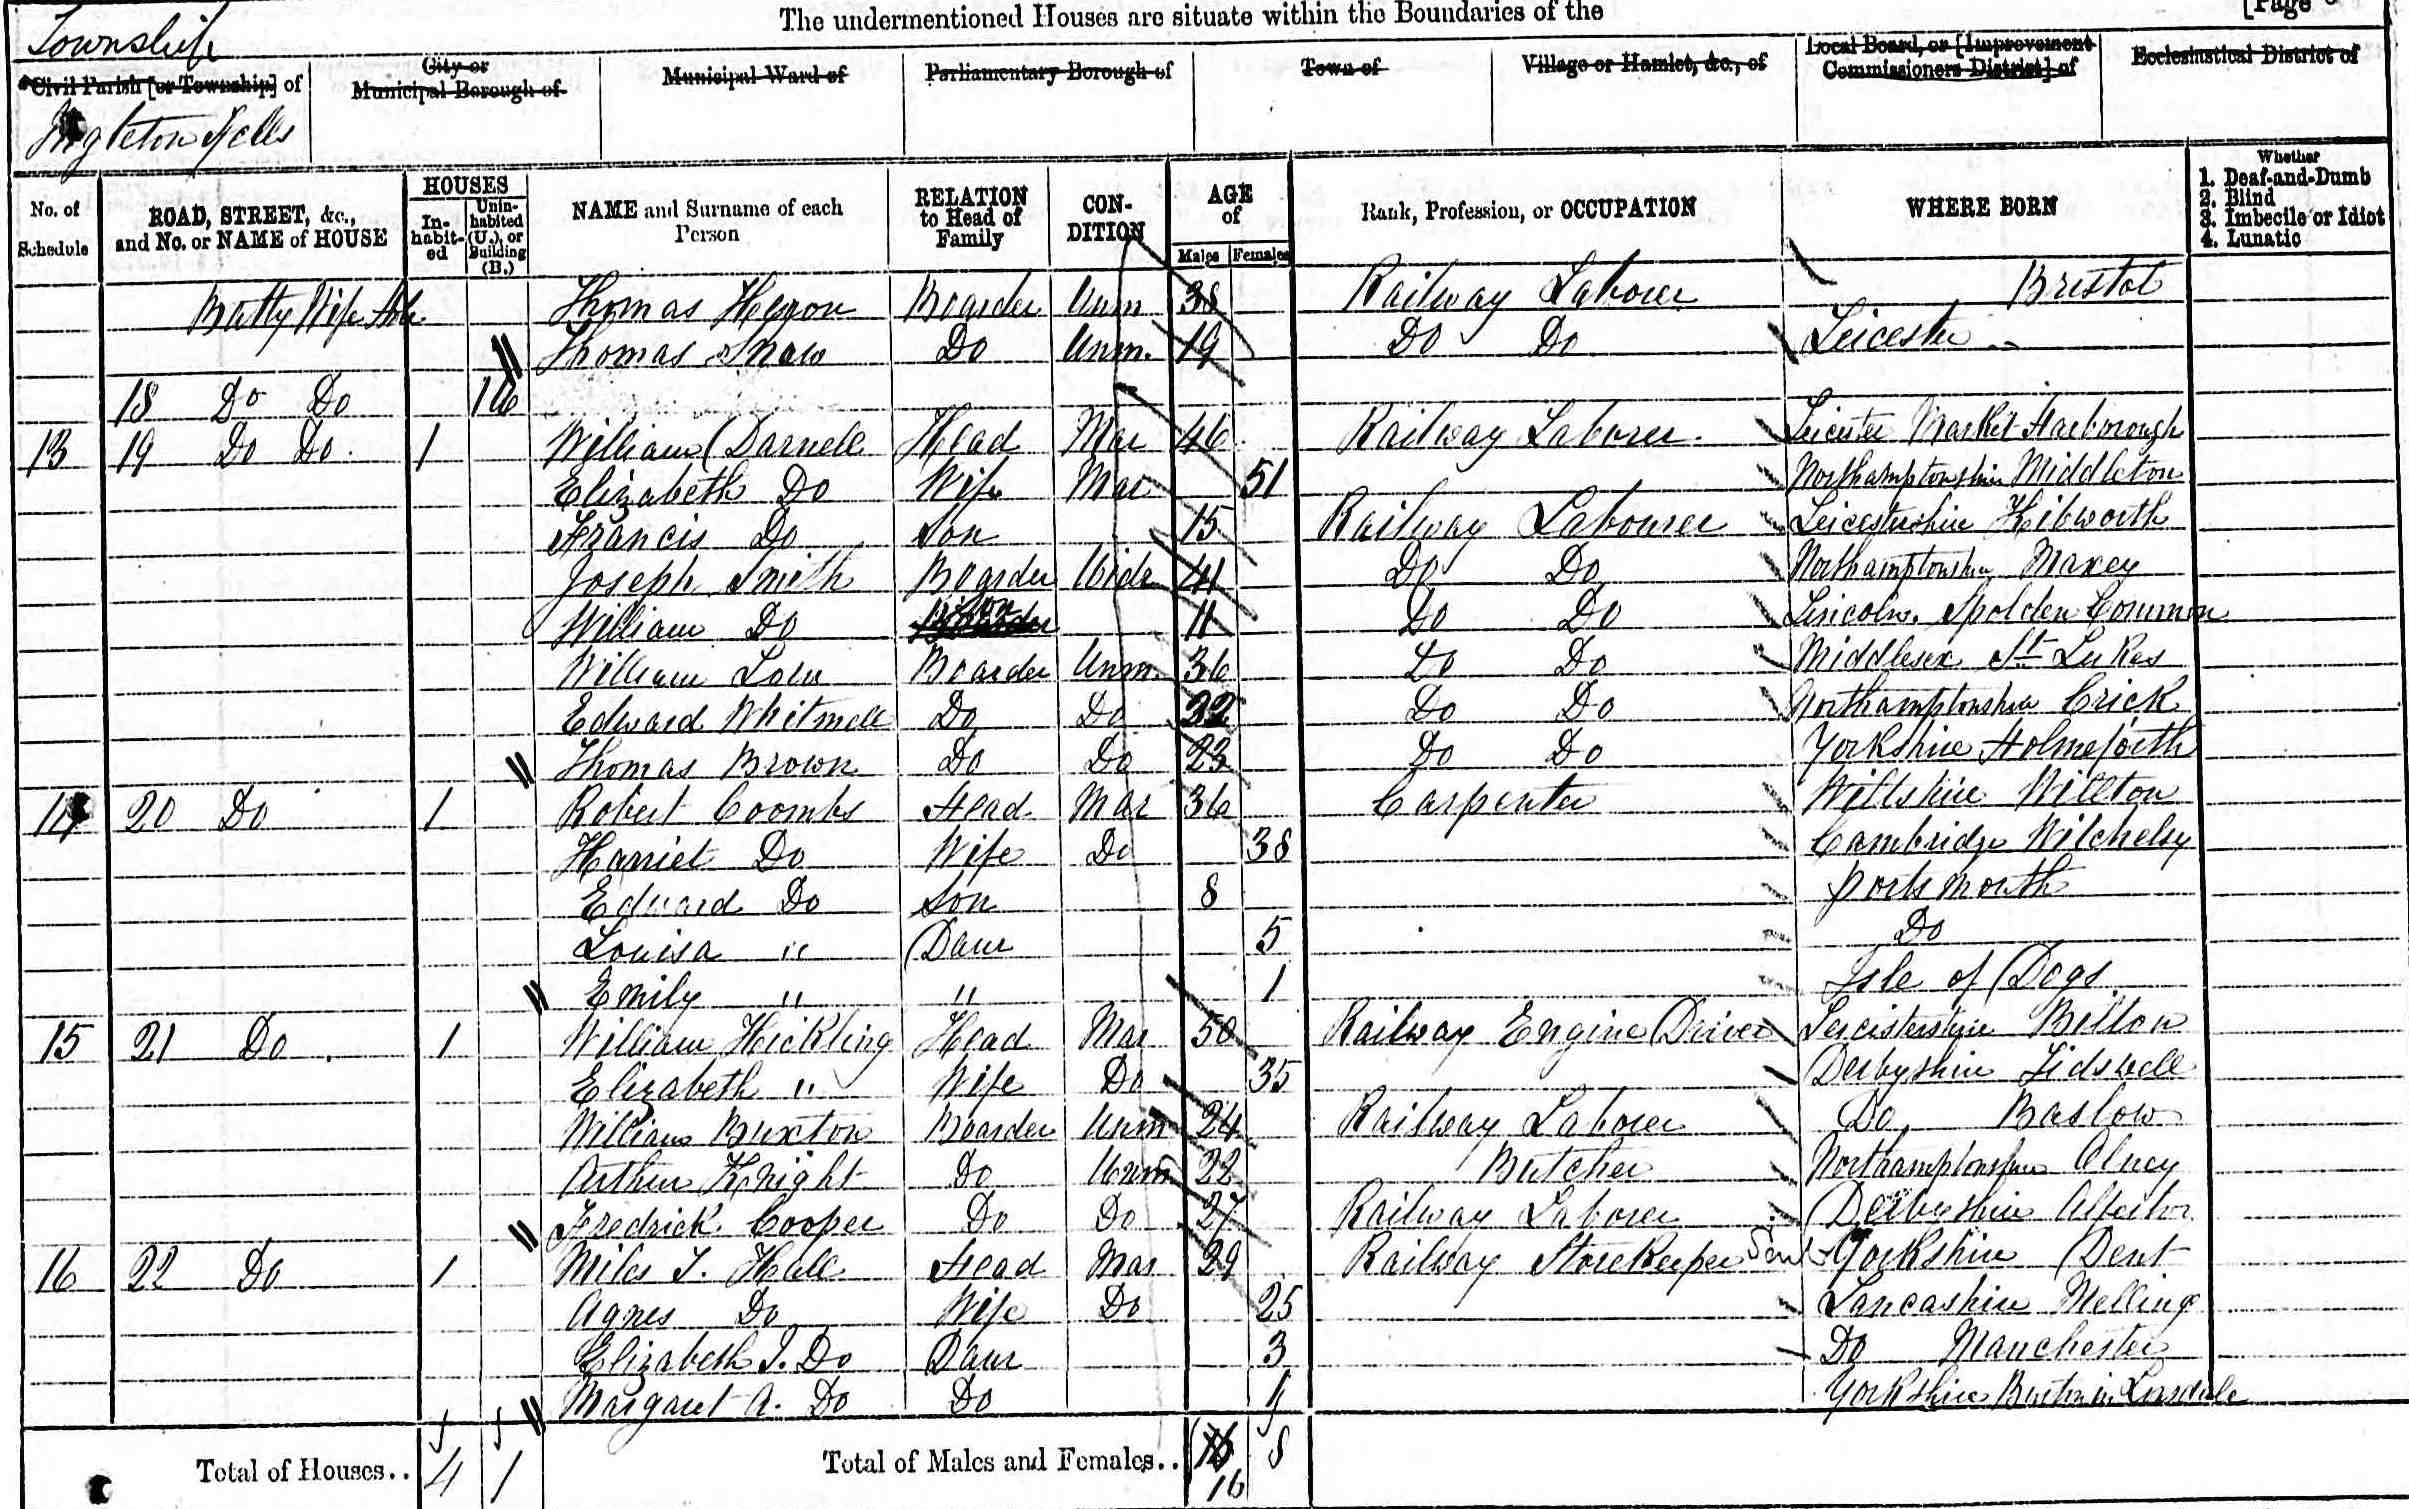 The undermentioned Houses are situate within the Boundaries of the
[Page
Township
Civil Parish [or Township] of
City or
Municipal Borough of
Municipal Ward of
Parliamentary Borough of
Town of
Village or Hamlet, &c., of
Local Board, or [Improvement
Commissioners District] of
Ecclesiastical District of
Ingleton Fells
No. of
Schedule
ROAD, STREET, &c.,
and No. or NAME of HOUSE
HOUSES
In-
habit-
ed
Unin-
habited
(U.), or
Building
(B.)
NAME and Surname of each
Person
RELATION
to Head of
Family
CON-
DITION
AGE
of
Males Females
Rank, Profession, or OCCUPATION
WHERE BORN
Whether
1. Deaf-and-Dumb
2. Blind
3. Imbecile or Idiot
4. Lunatic
Batty Wife Hole Thomas Boarder Unm 38 Railway Laborer Bristol
Thomas Shaw Do Unm. 19 Do Do Leicester
18 Do Do
13 19 Do Do 1 William Darnell Head Mar 46 Railway Laborer Leicester Market Harborough
Elizabeth Do Wife Mar 51 Northamptonshire Middleton
Francis Do Son 15 Railway Labourer Leicestershire Kibworth
Joseph Smith Boarder Widr 41 Do Do Northamptonshire Maxey
William Do Son 11 Do Do Lincoln. Common
William Boarder Unm. 36 Do Do Middlesex St Lukes
Edward Whitmell Do Do 22 Do Do Northamptonshire Crick
Thomas Brown Do Do 23 Do Do Yorkshire Holmeforth
14 20 Do 1 Robert Coombs Head Mar 36 Carpenter Willshire Willton
Harriet Do Wife Do 38 Cambridge
Edward Do Son 8 Portsmouth
Louisa " Daur 5 Do
Emily " " 1 Isle of Dogs
15 21 Do. 1 William Hickling Head Mar 50 Railway Engine Driver Leicestershire
Elizabeth " Wife Do 35 Derbyshire Lidswell
William Buxton Boarder Unm 24 Railway Laborer Do Baslow
Arthur Knight Do Unm 22 Butcher Northamptonshire Olney
Fredrick Cooper Do Do 27 Railway Laborer Derbyshire
16 22 Do 1 Miles J. Hall Head Mar 29 Railway Storekeeper Yorkshire Dent
Agnes Do Wife Do 25 Lancashire Melling
Elizabeth J. Do Daur 3 Do Manchester
Margaret A. Do Do 1 Yorkshire Burton in Lonsdale
Total of Houses.. 4 1
Total of Males and Females.. 16 8